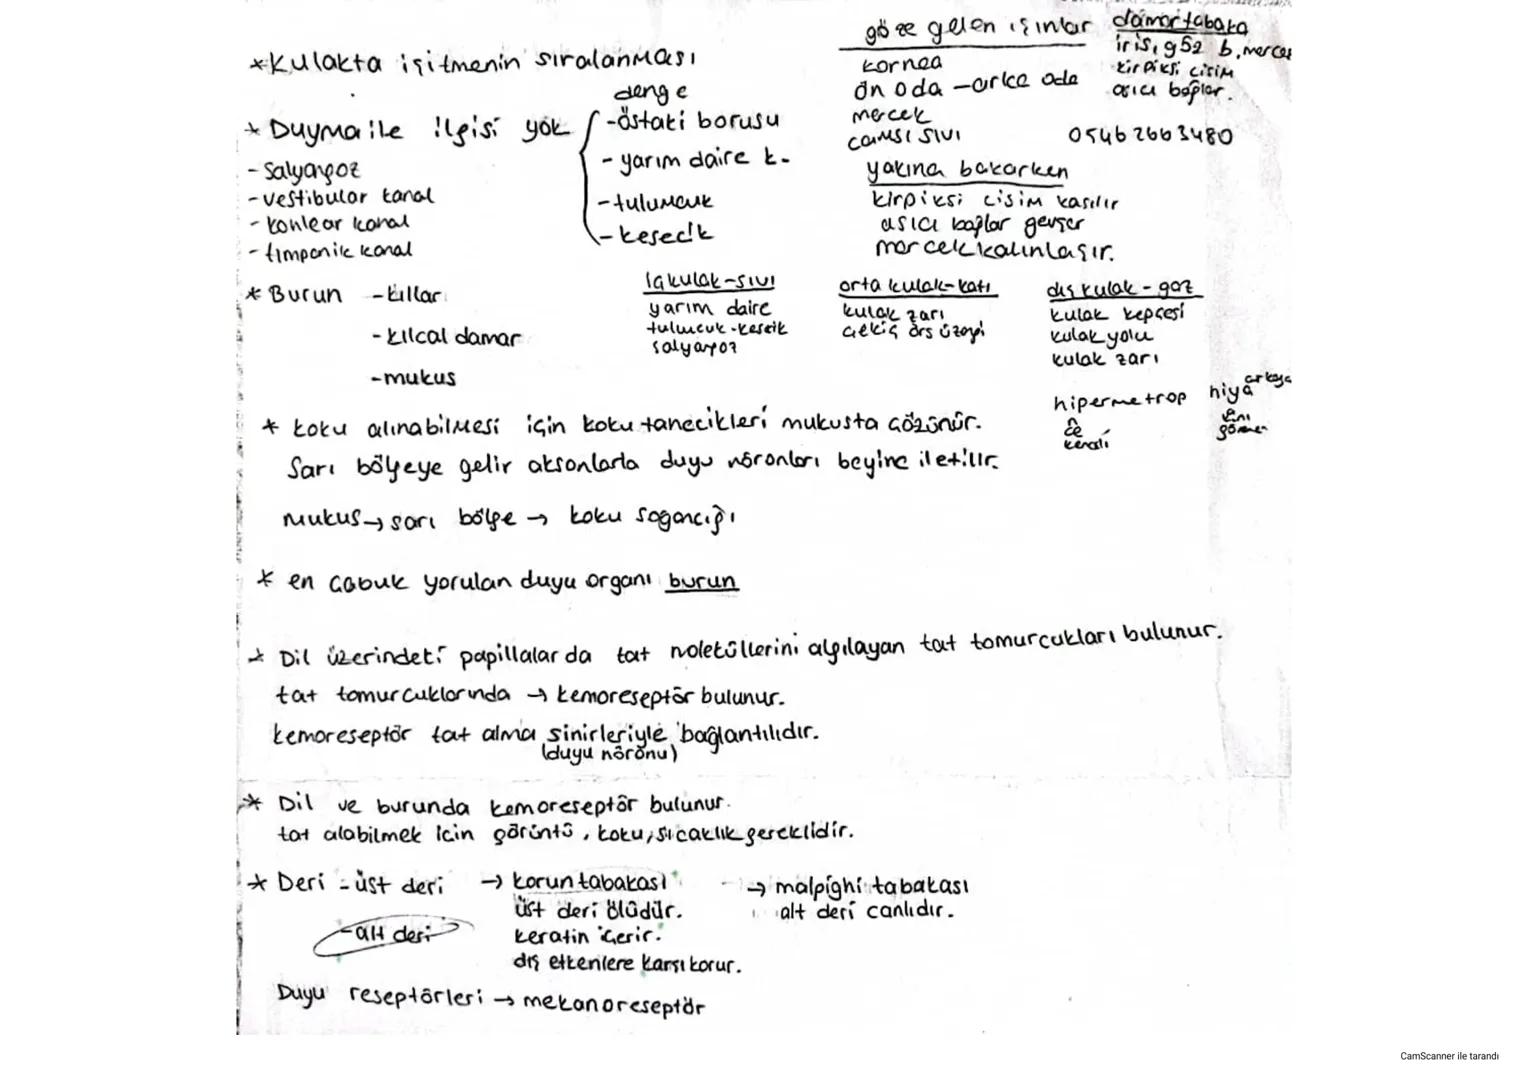 *Kulakta işitmenin sıralanması
* Duyma ile ilgisi yok
- Salyangoz
- vestibular kanal
- konlear kanal
- timpanik kanal
denge
-östaki borusu
- yarım daire k.
- tulumcuk
- kesecik
göze gelen ışınlar
kornea
ön oda - arka oda
mercek
camsı sıvı
damar tabaka
iris, göz b. mercek
kirpiksi cisim
asıcı bağlar.
05462663480
yakına bakarken
kirpiksi cisim kasılır
asıcı bağlar gevşer
mercek kalınlaşır.
* Burun -kıllar
-kılcal damar
-mukus
iç kulak-sıvı
yarım daire
tulumcuk-kesecik
salyangoz
orta kulak-katı
kulak zarı
çekiç örs üzengi
dış kulak - gaz
kulak kepçesi
kulak yolu
kulak zarı
hipermetrop
kendi
arkaya
* koku alınabilmesi için koku tanecikleri mukusta çözünür.
Sarı bölgeye gelir aksonlarla duyu nöronları beyine iletilir.
mukus → sarı bölge → koku soğancığı
* en çabuk yorulan duyu organı burun
* Dil üzerindeki papillalar da tat moleküllerini algılayan tat tomurcukları bulunur.
tat tomurcuklarında → kemoreseptör bulunur.
kemoreseptör tat alma sinirleriyle bağlantılıdır.
(duyu nöronu)
* Dil ve burunda kemoreseptör bulunur.
tat alabilmek için görüntü, koku, sıcaklık gereklidir.
* Deri - üst deri → korun tabakası → malpighi tabakası
üst deri ölüdür. alt deri canlıdır.
-alt deri keratin içerir.
dış etkenlere karşı korur.
Duyu reseptörleri → mekanoreseptör
CamScanner ile tarandı